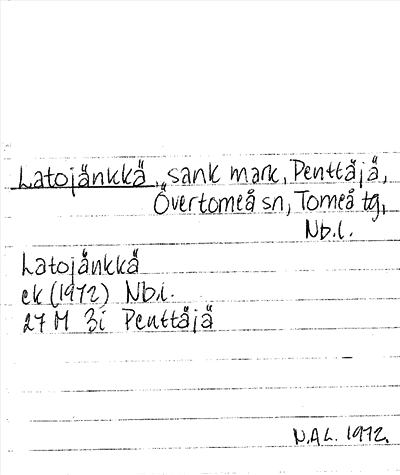 Latojänkkä, sank mark, Penttäjä,
Övertorneå sn, Torneå tg,
Nb.l.
Latojänkkä
ek (1972) Nb.l.
27 M 3i Penttäjä
N.A.L. 1972.